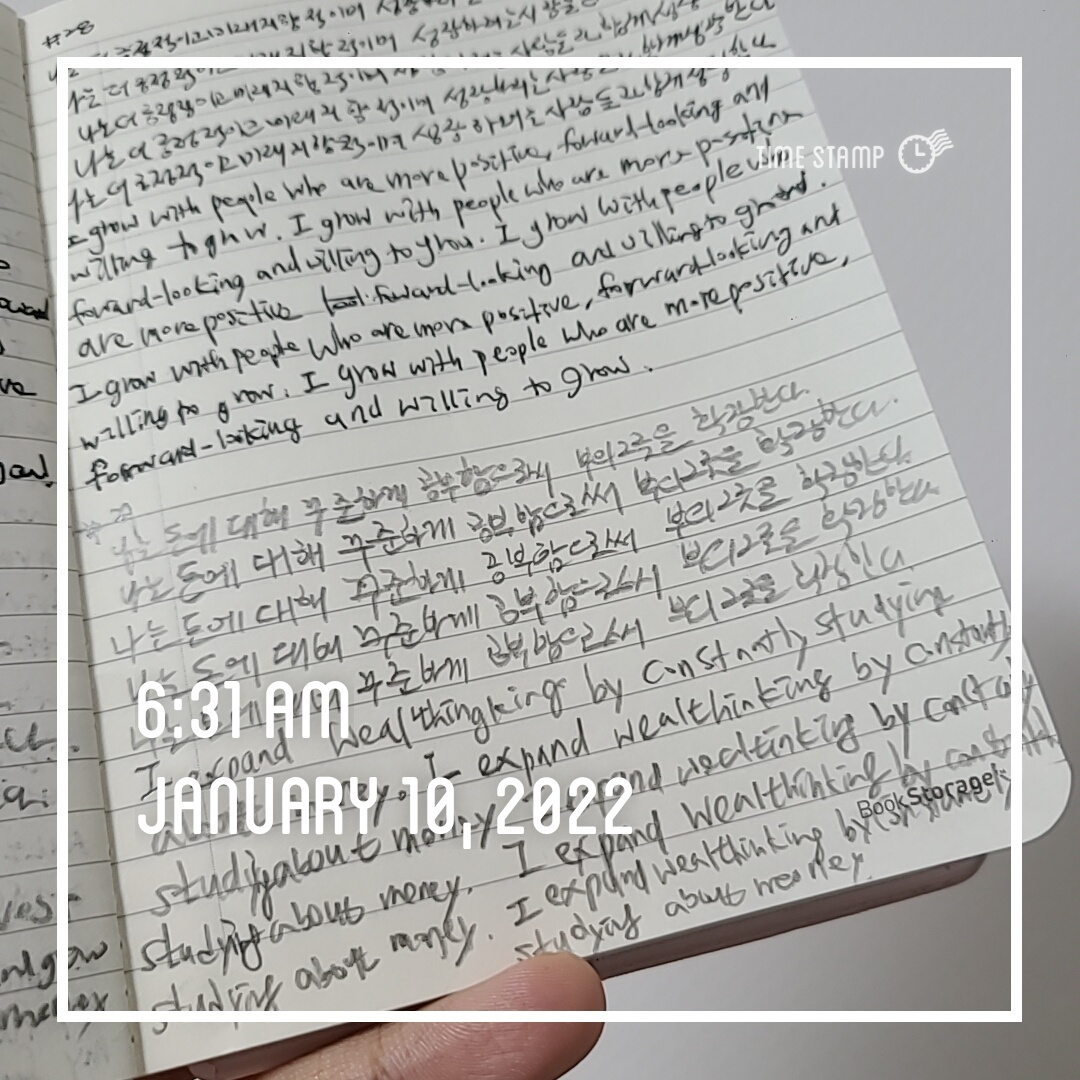 #28
나는 더 긍정적이고 미래지향적이며
나는 더 긍정적이고 미래지향적이며 성장하려는 사람들과
나는 더 긍정적이고 미래지향적이며 성장하려는 사람들과 함께 성장한다
나는 더 긍정적이고 미래지향적이며 성장하려는 사람들과 함께 성장한다
I grow with people who are more positive, forward-looking and
willing to grow. I grow with people who are more positive
forward-looking and willing to grow. I grow with people who
are more positive forward-looking and willing to grow.
I grow with people who are more positive, forward-looking and
willing to grow. I grow with people who are more positive,
forward-looking and willing to grow.
나는 돈에 대해 꾸준하게 공부함으로써 부의 그릇을 확장한다.
나는 돈에 대해 꾸준하게 공부함으로써 부의 그릇을 확장한다.
나는 돈에 대해 꾸준하게 공부함으로써 부의 그릇을 확장한다.
나는 돈에 대해 꾸준하게 공부함으로써 부의 그릇을 확장한다.
꾸준하게 공부함으로써 부의 그릇을 확장한다.
I expand wealthingking by constantly studying
money. I expand wealthinking by constantly
studying about money expand wealtinking by constantly
studying about money. I expand wealthinking by constantly
studying about money. I expand wealthinking by constantly
studying about money.
TIME STAMP
6:31 AM
JANUARY 10, 2022
BookStorage